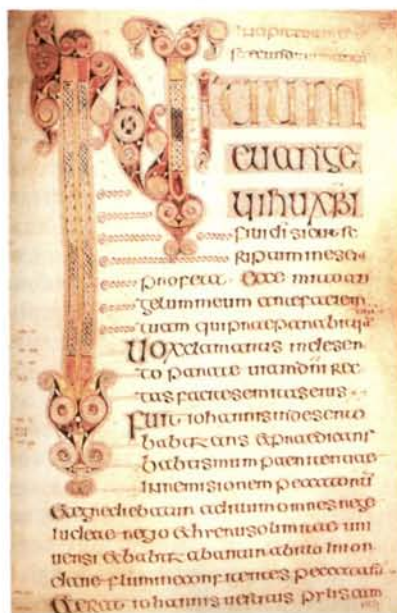 INITIUM
euange
lii ihu xpi
filii di sicut sc
riptum in esei
profeta · Ecce mitto an
gelum meum ante faciem
tuam qui praeparabit
Uox clamantis in deser
to parate uiam dni rec
tas facite semitas eius
Fuit iohannis in deserto
babtizans & praedicans
babtismum paenitentiae
in remisionem peccatorū
& egrediebatur ad illum omnes
iudeae regio & hierusolimitae uni
uersi & babtizabantur ab illo in ior
dane flumine confitentes peccata
& erat iohannis uestitus pylis cam